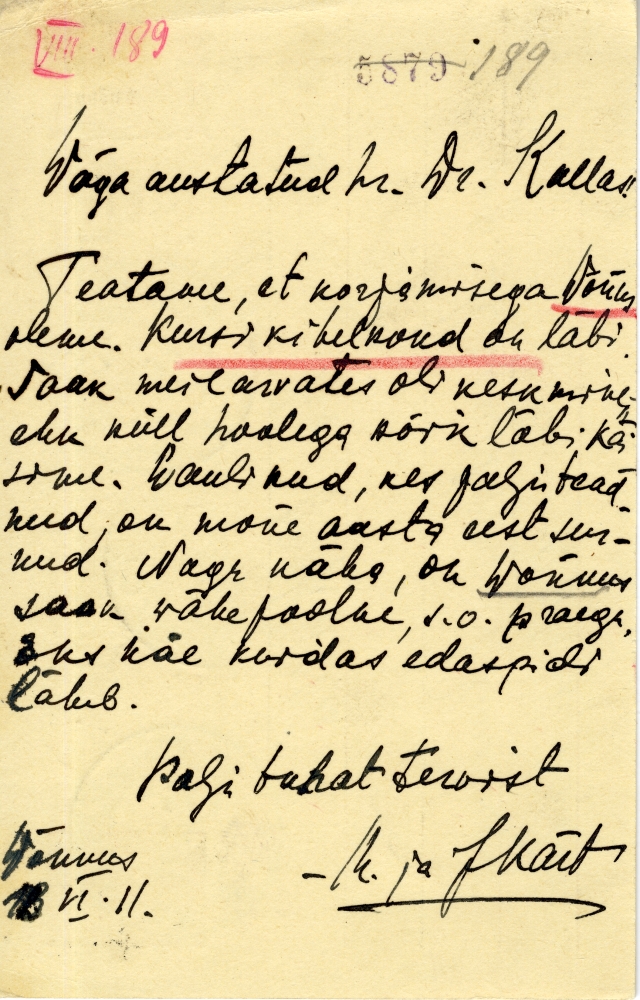 VIII. 189
5879 189
Väga austatud hr. Dr. Kallas!
Teatame, et korjamisega Võnnus
oleme. Kursi kihelkond on läbi.
Saak meie arvates oli keskmine,
ehk küll hoolega kõik läbi käi-
sime. Laulikud, kes palju tead-
nud, on mõne aasta eest sur-
nud. Nagu näha, on Wõnnus
saak vähepoolne, s.o. praegu,
eks näe kuidas edaspidi
läheb.
Palju tuhat tervist
K. ja J Kärt
Wõnnus
18 VI. 11.